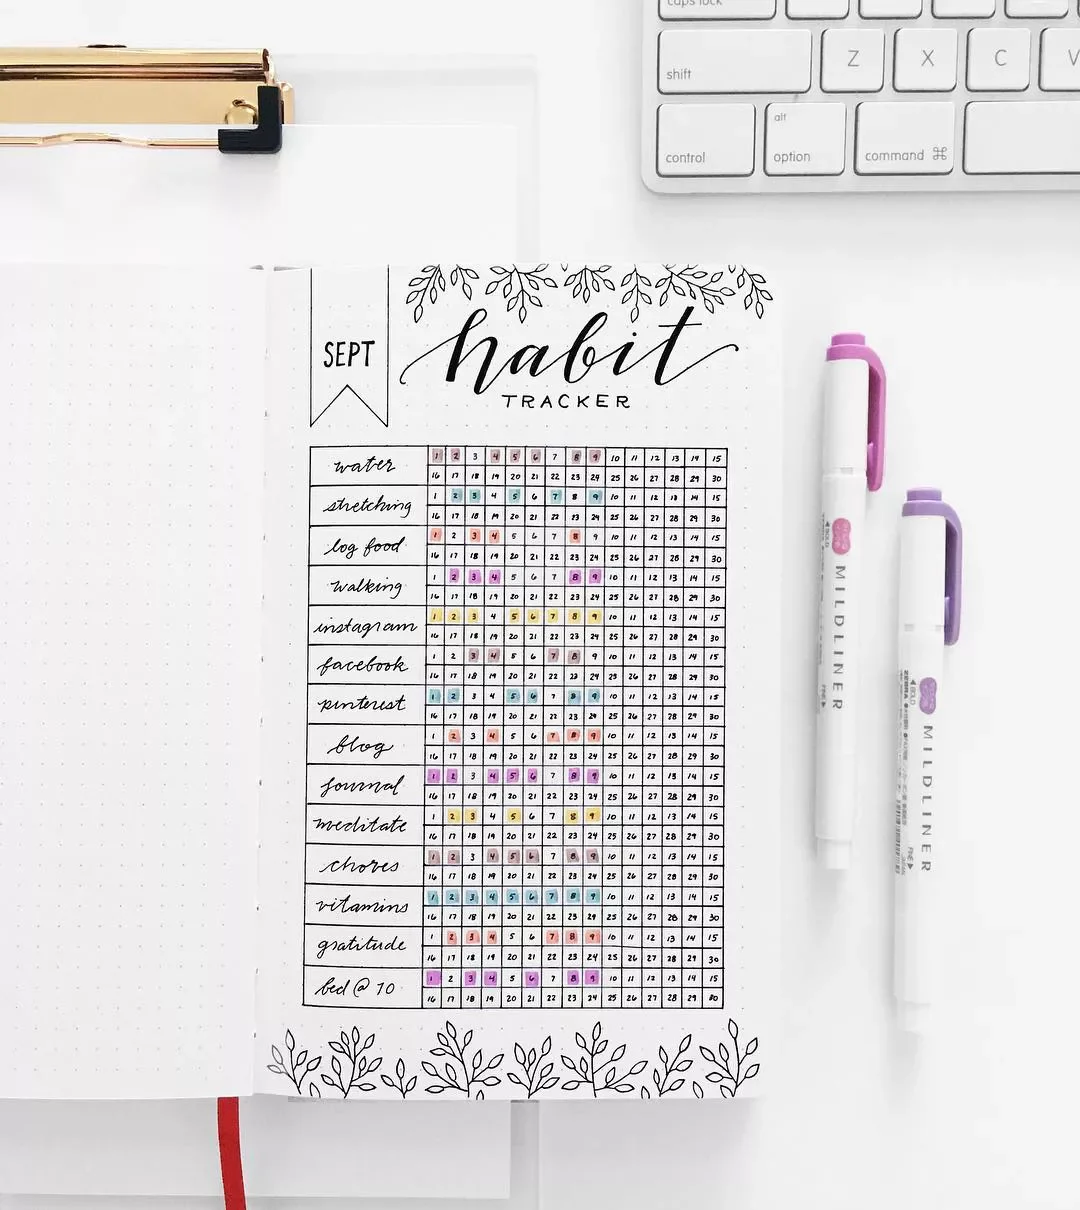 caps lock
shift Z X C V
alt
control option command ⌘
SEPT
habit
TRACKER
water 1 2 3 4 5 6 7 8 9 10 11 12 13 14 15
16 17 18 19 20 21 22 23 24 25 26 27 28 29 30
stretching 1 2 3 4 5 6 7 8 9 10 11 12 13 14 15
16 17 18 19 20 21 22 23 24 25 26 27 28 29 30
log food 1 2 3 4 5 6 7 8 9 10 11 12 13 14 15
16 17 18 19 20 21 22 23 24 25 26 27 28 29 30
walking 1 2 3 4 5 6 7 8 9 10 11 12 13 14 15
16 17 18 19 20 21 22 23 24 25 26 27 28 29 30
instagram 1 2 3 4 5 6 7 8 9 10 11 12 13 14 15
16 17 18 19 20 21 22 23 24 25 26 27 28 29 30
facebook 1 2 3 4 5 6 7 8 9 10 11 12 13 14 15
16 17 18 19 20 21 22 23 24 25 26 27 28 29 30
pinterest 1 2 3 4 5 6 7 8 9 10 11 12 13 14 15
16 17 18 19 20 21 22 23 24 25 26 27 28 29 30
blog 1 2 3 4 5 6 7 8 9 10 11 12 13 14 15
16 17 18 19 20 21 22 23 24 25 26 27 28 29 30
journal 1 2 3 4 5 6 7 8 9 10 11 12 13 14 15
16 17 18 19 20 21 22 23 24 25 26 27 28 29 30
meditate 1 2 3 4 5 6 7 8 9 10 11 12 13 14 15
16 17 18 19 20 21 22 23 24 25 26 27 28 29 30
chores 1 2 3 4 5 6 7 8 9 10 11 12 13 14 15
16 17 18 19 20 21 22 23 24 25 26 27 28 29 30
vitamins 1 2 3 4 5 6 7 8 9 10 11 12 13 14 15
16 17 18 19 20 21 22 23 24 25 26 27 28 29 30
gratitude 1 2 3 4 5 6 7 8 9 10 11 12 13 14 15
16 17 18 19 20 21 22 23 24 25 26 27 28 29 30
bed @ 10 1 2 3 4 5 6 7 8 9 10 11 12 13 14 15
16 17 18 19 20 21 22 23 24 25 26 27 28 29 30
◀BOLD
MILDLINER
FINE▶
◀BOLD
ZEBRA
MILDLINER
FINE▶